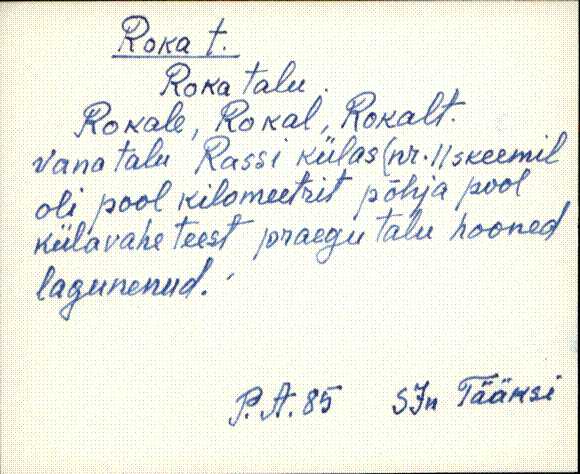 Roka t.
Roka talu.
Rokale, Rokal, Rokalt.
Vana talu Rassi külas (nr. 1) skeemil
oli pool kilomeetrit põhja pool
külavahe teest praegu talu hooned
lagunenud.
P.A. 85 SJn Tääksi